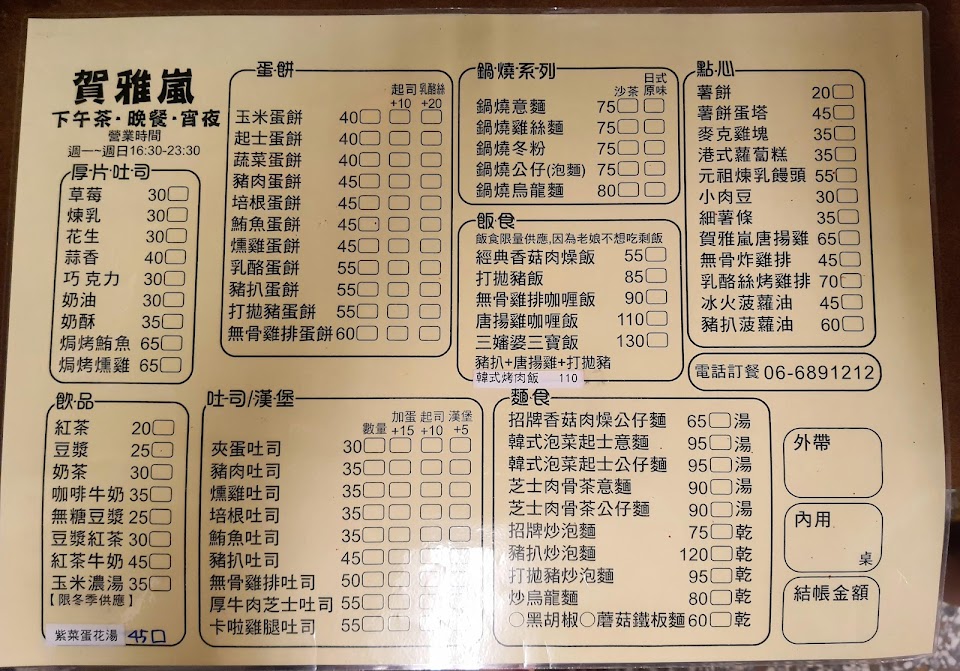 賀雅嵐
下午茶·晚餐·宵夜
營業時間
週一~週日16:30-23:30
厚片吐司
草莓 30
煉乳 30
花生 30
蒜香 40
巧克力 30
奶油 30
奶酥 35
焗烤鮪魚 65
焗烤燻雞 65
飲品
紅茶 20
豆漿 25
奶茶 30
咖啡牛奶 35
無糖豆漿 25
豆漿紅茶 30
紅茶牛奶 45
玉米濃湯 35
【限冬季供應】
紫菜蛋花湯 45
蛋餅
起司 乳酪絲
+10 +20
玉米蛋餅 40
起士蛋餅 40
蔬菜蛋餅 40
豬肉蛋餅 45
培根蛋餅 45
鮪魚蛋餅 45
燻雞蛋餅 45
乳酪蛋餅 55
豬扒蛋餅 55
打拋豬蛋餅 55
無骨雞排蛋餅 60
吐司/漢堡
加蛋 起司 漢堡
數量 +15 +10 +5
夾蛋吐司 30
豬肉吐司 35
燻雞吐司 35
培根吐司 35
鮪魚吐司 35
豬扒吐司 45
無骨雞排吐司 50
厚牛肉芝士吐司 55
卡啦雞腿吐司 55
鍋燒系列
日式
沙茶 原味
鍋燒意麵 75
鍋燒雞絲麵 75
鍋燒冬粉 75
鍋燒公仔(泡麵) 75
鍋燒烏龍麵 80
飯食
飯食限量供應,因為老娘不想吃剩飯
經典香菇肉燥飯 55
打拋豬飯 85
無骨雞排咖喱飯 90
唐揚雞咖喱飯 110
三嬸婆三寶飯 130
豬扒+唐揚雞+打拋豬
韓式烤肉飯 110
麵食
招牌香菇肉燥公仔麵 65 湯
韓式泡菜起士意麵 95 湯
韓式泡菜起士公仔麵 95 湯
芝士肉骨茶意麵 90 湯
芝士肉骨茶公仔麵 90 湯
招牌炒泡麵 75 乾
豬扒炒泡麵 120 乾
打拋豬炒泡麵 95 乾
炒烏龍麵 80 乾
○黑胡椒○蘑菇鐵板麵 60 乾
點心
薯餅 20
薯餅蛋塔 45
麥克雞塊 35
港式蘿蔔糕 35
元祖煉乳饅頭 55
小肉豆 30
細薯條 35
賀雅嵐唐揚雞 65
無骨炸雞排 45
乳酪絲烤雞排 70
冰火菠蘿油 45
豬扒菠蘿油 60
電話訂餐 06-6891212
外帶
內用
桌
結帳金額